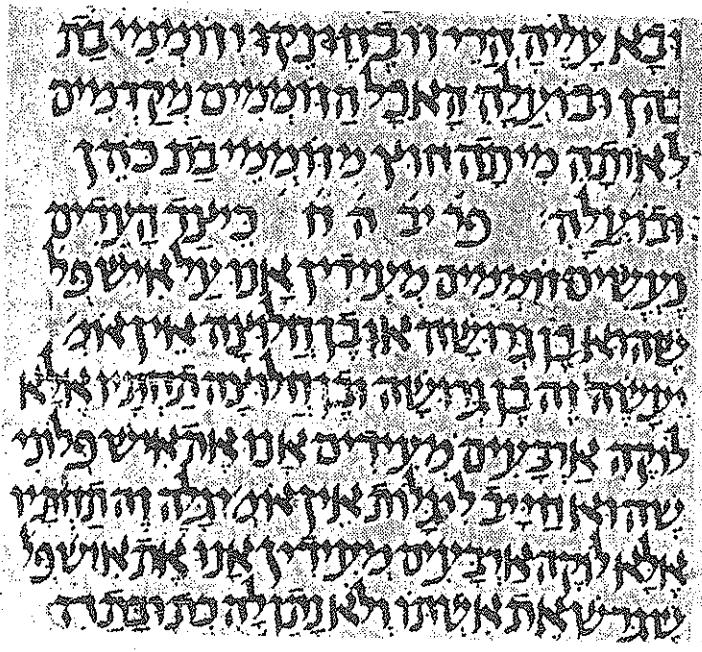 ובא עליה הרי זו וזוממי בת
כהן ובועלה הזוממים מקדמים
לאותה מיתה חוץ מזוממי בת כהן
ובועלה פר׳ יב׳ ה׳ ח׳ כיצד העדים
נעשים זוממים מעידין אנו על איש פל׳
שהוא בן גרושה או בן חלוצה אין או׳
יעשה זה בן גרושה ובן חלוצה תחתיו אלא
לוקה ארבעים מעידים אנו את איש פלוני
שהוא חייב לגלות אין או׳ יגלה זה תחתיו
אלא לוקה ארבעים מעידין אנו את איש פל׳
שגרש את אשתו ולא נתן לה כתובתה